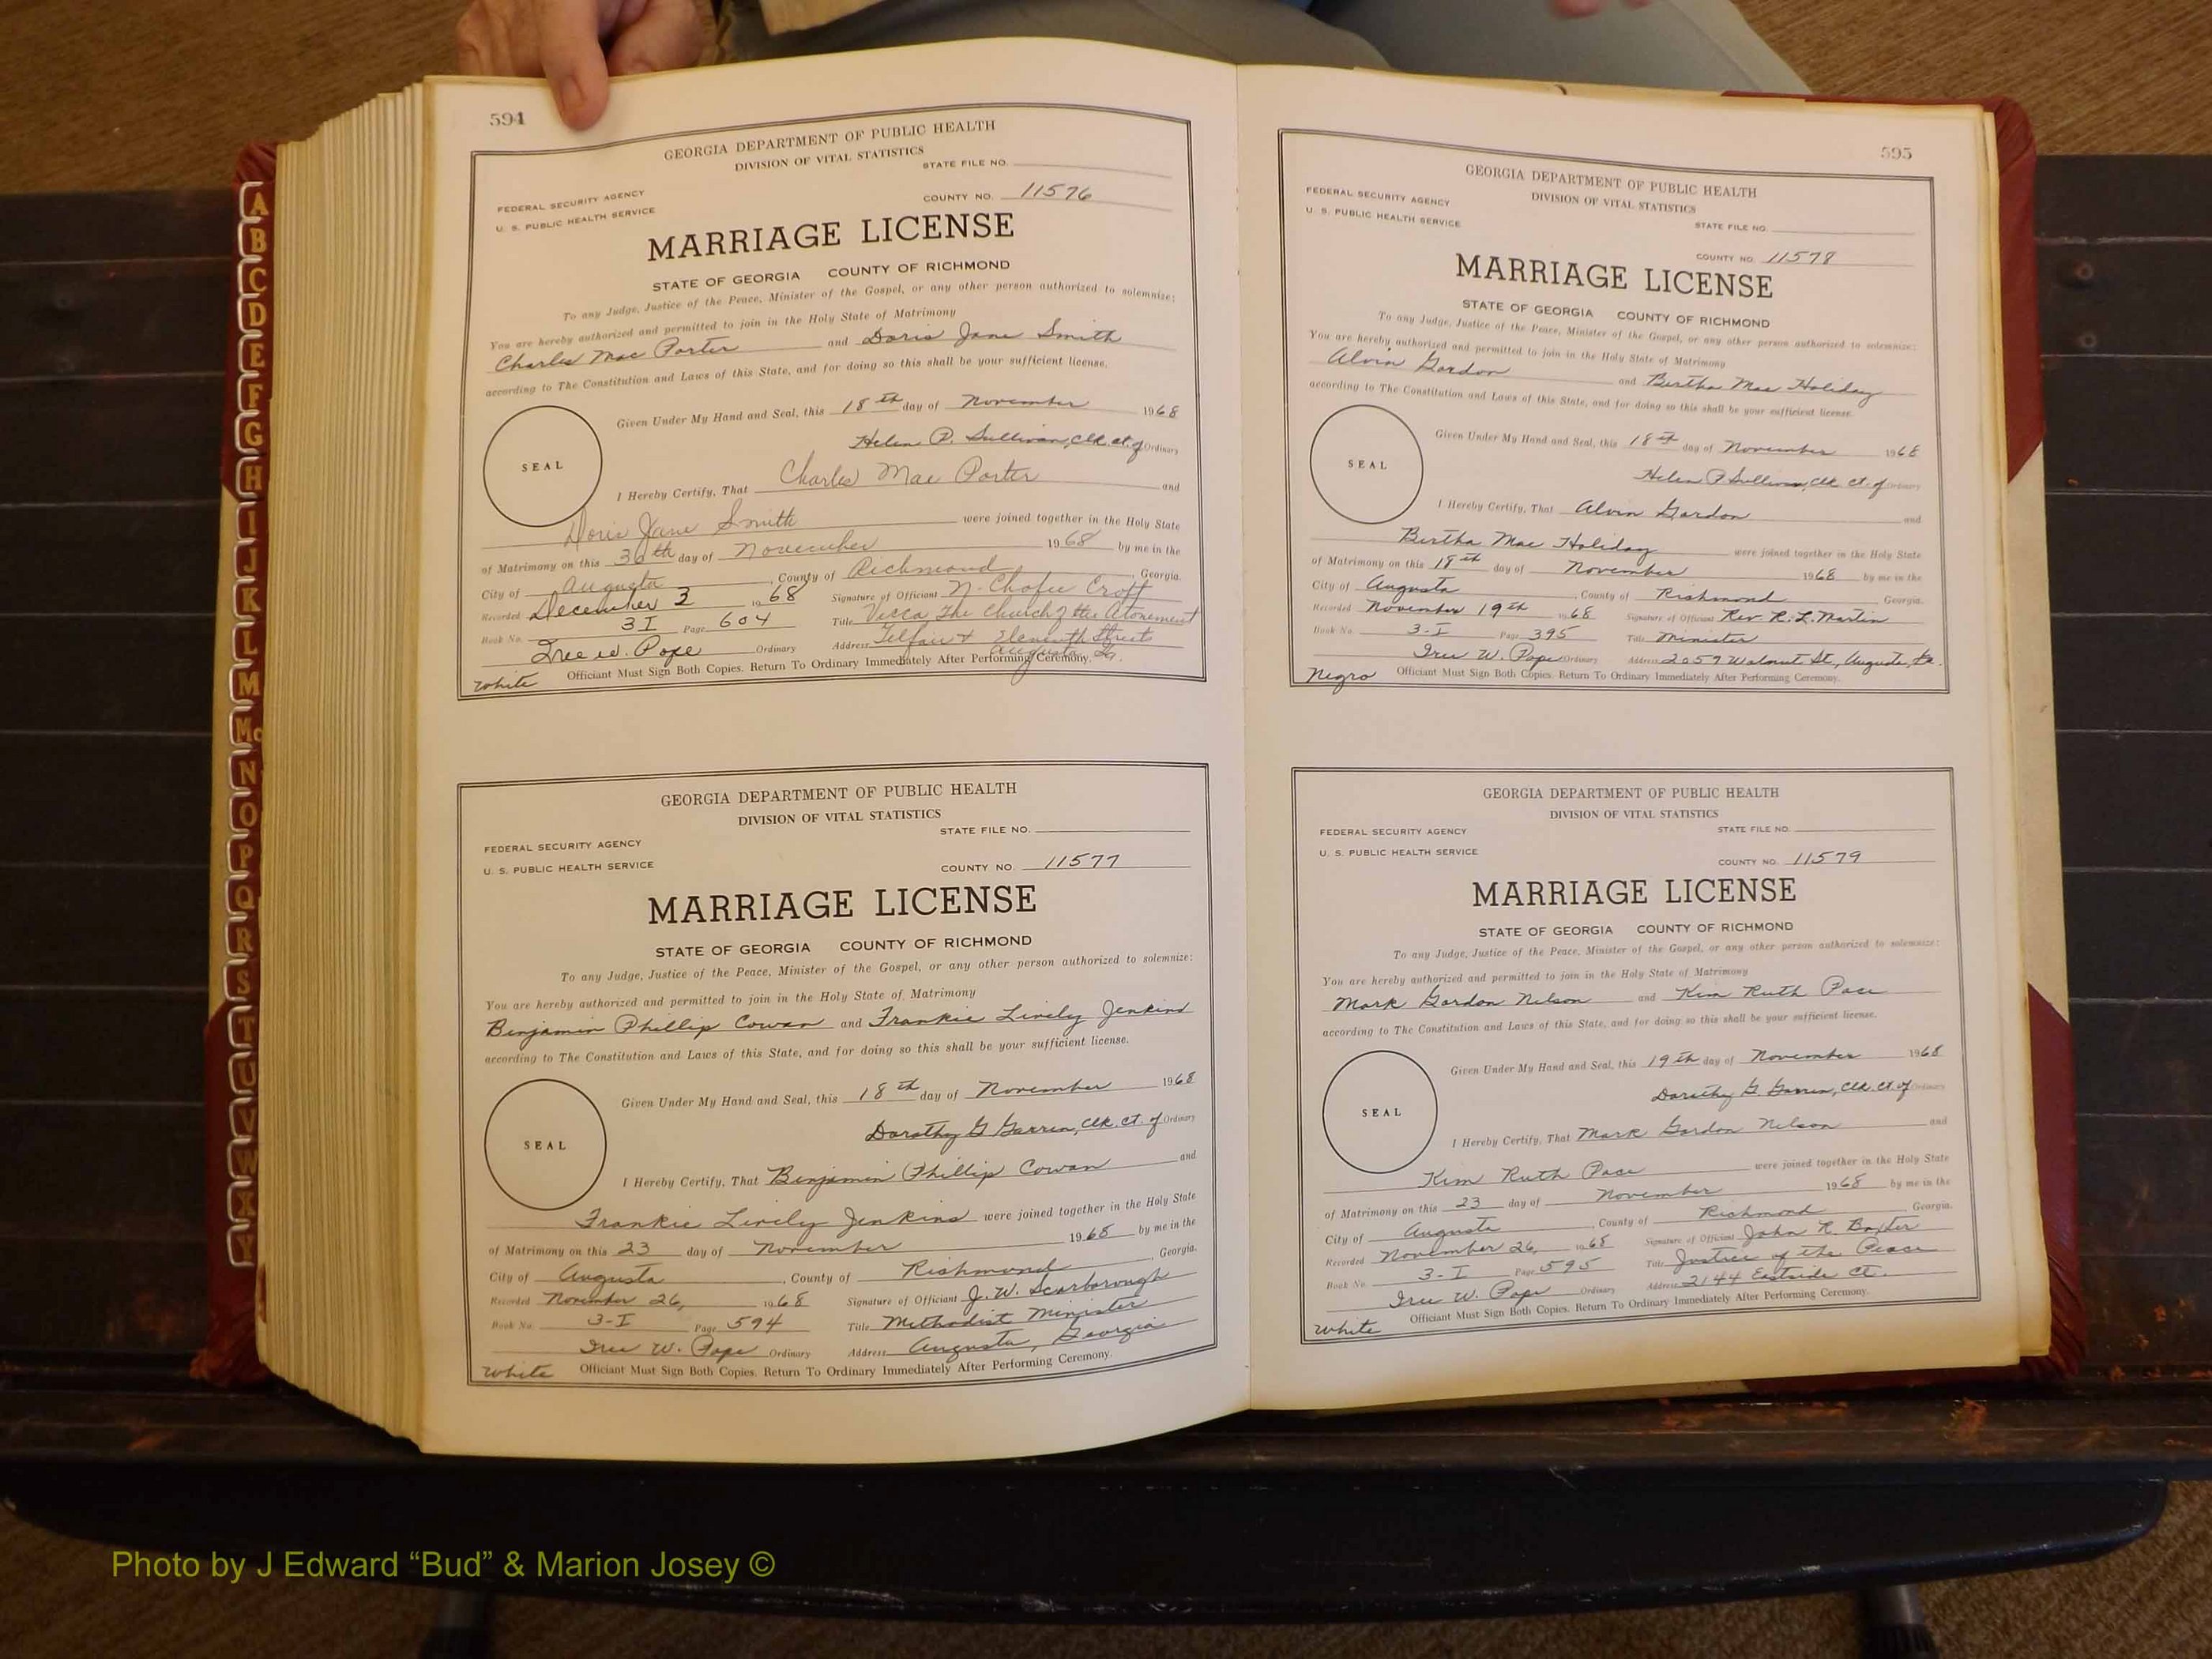 594
GEORGIA DEPARTMENT OF PUBLIC HEALTH
DIVISION OF VITAL STATISTICS
STATE FILE NO.
FEDERAL SECURITY AGENCY
U. S. PUBLIC HEALTH SERVICE
COUNTY NO. 11576
MARRIAGE LICENSE
STATE OF GEORGIA COUNTY OF RICHMOND
To any Judge, Justice of the Peace, Minister of the Gospel, or any other person authorized to solemnize:
You are hereby authorized and permitted to join in the Holy State of Matrimony
Charles Mac Porter and Doris Jane Smith
according to The Constitution and Laws of this State, and for doing so this shall be your sufficient license.
Given Under My Hand and Seal, this 18th day of November 1968
Helen P. Sullivan, Clk. Ct. of Ordinary
SEAL
I Hereby Certify, That Charles Mac Porter and
Doris Jane Smith were joined together in the Holy State
of Matrimony on this 30th day of November 1968 by me in the
City of Augusta, County of Richmond, Georgia.
Recorded December 3 1968 Signature of Officiant
Book No. 3I Page 604 Title The Church of the Atonement
Address Telfair & Eleventh Streets
Augusta, Ga.
Iree W. Pope Ordinary
White Officiant Must Sign Both Copies. Return To Ordinary Immediately After Performing Ceremony.
GEORGIA DEPARTMENT OF PUBLIC HEALTH
DIVISION OF VITAL STATISTICS
STATE FILE NO.
FEDERAL SECURITY AGENCY
U. S. PUBLIC HEALTH SERVICE
COUNTY NO. 11577
MARRIAGE LICENSE
STATE OF GEORGIA COUNTY OF RICHMOND
To any Judge, Justice of the Peace, Minister of the Gospel, or any other person authorized to solemnize:
You are hereby authorized and permitted to join in the Holy State of Matrimony
Benjamin Phillip Cowan and Frankie Lively Jenkins
according to The Constitution and Laws of this State, and for doing so this shall be your sufficient license.
Given Under My Hand and Seal, this 18th day of November 1968
Dorothy G Garren, Clk. Ct. of Ordinary
SEAL
I Hereby Certify, That Benjamin Phillip Cowan and
Frankie Lively Jenkins were joined together in the Holy State
of Matrimony on this 23 day of November 1968 by me in the
City of Augusta, County of Richmond, Georgia.
Recorded November 26, 1968 Signature of Officiant J. W. Scarborough
Book No. 3-I Page 594 Title Methodist Minister
Iree W. Pope Ordinary Address Augusta, Georgia
White Officiant Must Sign Both Copies. Return To Ordinary Immediately After Performing Ceremony.
595
GEORGIA DEPARTMENT OF PUBLIC HEALTH
DIVISION OF VITAL STATISTICS
FEDERAL SECURITY AGENCY
U. S. PUBLIC HEALTH SERVICE
STATE FILE NO.
COUNTY NO. 11578
MARRIAGE LICENSE
STATE OF GEORGIA COUNTY OF RICHMOND
To any Judge, Justice of the Peace, Minister of the Gospel, or any other person authorized to solemnize:
You are hereby authorized and permitted to join in the Holy State of Matrimony
Alvin Gordon and Bertha Mae Holiday
according to The Constitution and Laws of this State, and for doing so this shall be your sufficient license.
Given Under My Hand and Seal, this 18th day of November 1968
Helen P Sullivan, Clk. Ct. of Ordinary
SEAL
I Hereby Certify, That Alvin Gordon and
Bertha Mae Holiday were joined together in the Holy State
of Matrimony on this 18th day of November 1968 by me in the
City of Augusta, County of Richmond Georgia.
Recorded November 19th 1968 Signature of Officiant Rev. R. L. Martin
Book No. 3-I Page 395 Title Minister
Iree W. Pope Ordinary Address 2059 Walnut St., Augusta, Ga.
Negro Officiant Must Sign Both Copies. Return To Ordinary Immediately After Performing Ceremony.
GEORGIA DEPARTMENT OF PUBLIC HEALTH
DIVISION OF VITAL STATISTICS
FEDERAL SECURITY AGENCY
STATE FILE NO.
U. S. PUBLIC HEALTH SERVICE
COUNTY NO. 11579
MARRIAGE LICENSE
STATE OF GEORGIA COUNTY OF RICHMOND
To any Judge, Justice of the Peace, Minister of the Gospel, or any other person authorized to solemnize:
You are hereby authorized and permitted to join in the Holy State of Matrimony
Mark Gordon Nelson and Kim Ruth Pace
according to The Constitution and Laws of this State, and for doing so this shall be your sufficient license.
Given Under My Hand and Seal, this 19th day of November 1968
Dorothy G. Garren, Clk. Ct. of Ordinary
SEAL
I Hereby Certify, That Mark Gordon Nelson and
Kim Ruth Pace were joined together in the Holy State
of Matrimony on this 23 day of November 1968 by me in the
City of Augusta, County of Richmond Georgia.
Recorded November 26, 1968 Signature of Officiant John R. Baxter
Book No. 3-I Page 595 Title Justice of the Peace
Iree W. Pope Ordinary Address 2144 Eastside Ct.
White Officiant Must Sign Both Copies. Return To Ordinary Immediately After Performing Ceremony.
A
B
C
D
E
F
G
H
I
J
K
L
M
Mc
N
O
P
Q
R
S
T
U
V
W
X
Y
Photo by J Edward “Bud” & Marion Josey ©